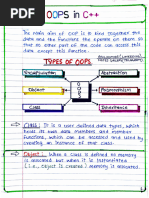 OOPS in C++
The main aim of OOP is to bind together the
data and the functions that operate on them so
that no other part of the code can access this
data except this function.
TYPES OF OOPS
Encapsulation
Abstraction
Object
OOPS
Polymorphism
Class
Inheritance
Class : It is a user defined data types, which
holds its own data members and member
functions, which can be accessed and used by
creating an instance of that class.
Object : When a class is defined no memory
is allocated but when it is
(i.e., Object is created) memory is allocated.